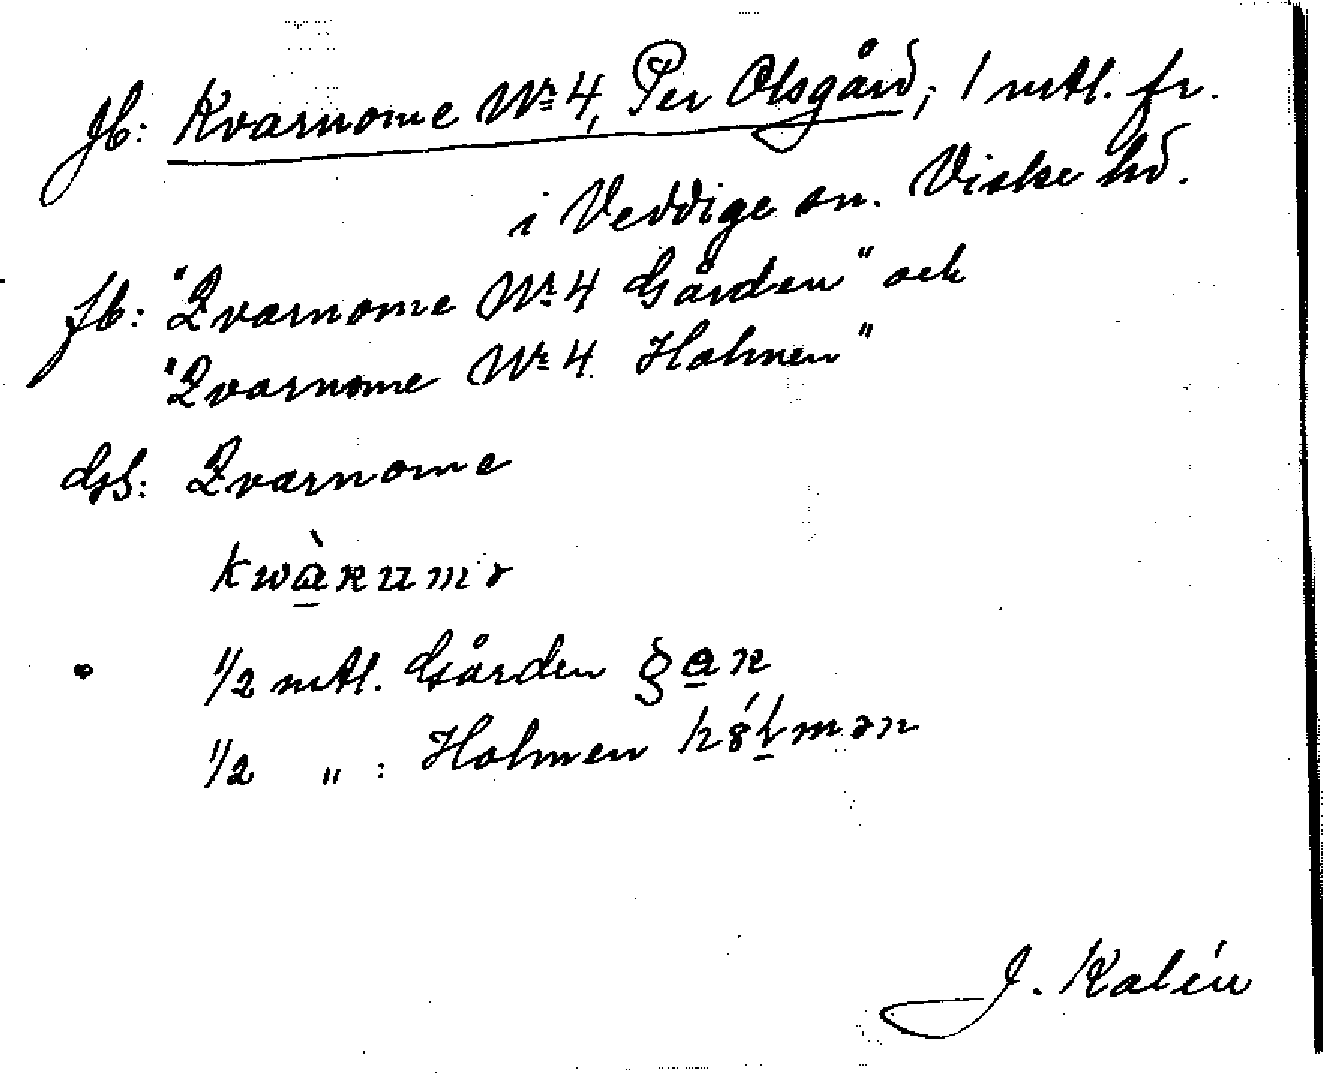 Jb: Kvarnome Nr 4, Per Olsgård; 1 mtl. fr.
i Veddige sn. Viske hd.
fb: "Qvarnome Nr 4 Gården" och
"Qvarnome Nr 4 Holmen"
GS: Qvarnome
1/2 mtl. Gården
1/2 " : Holmen
J. Kalén